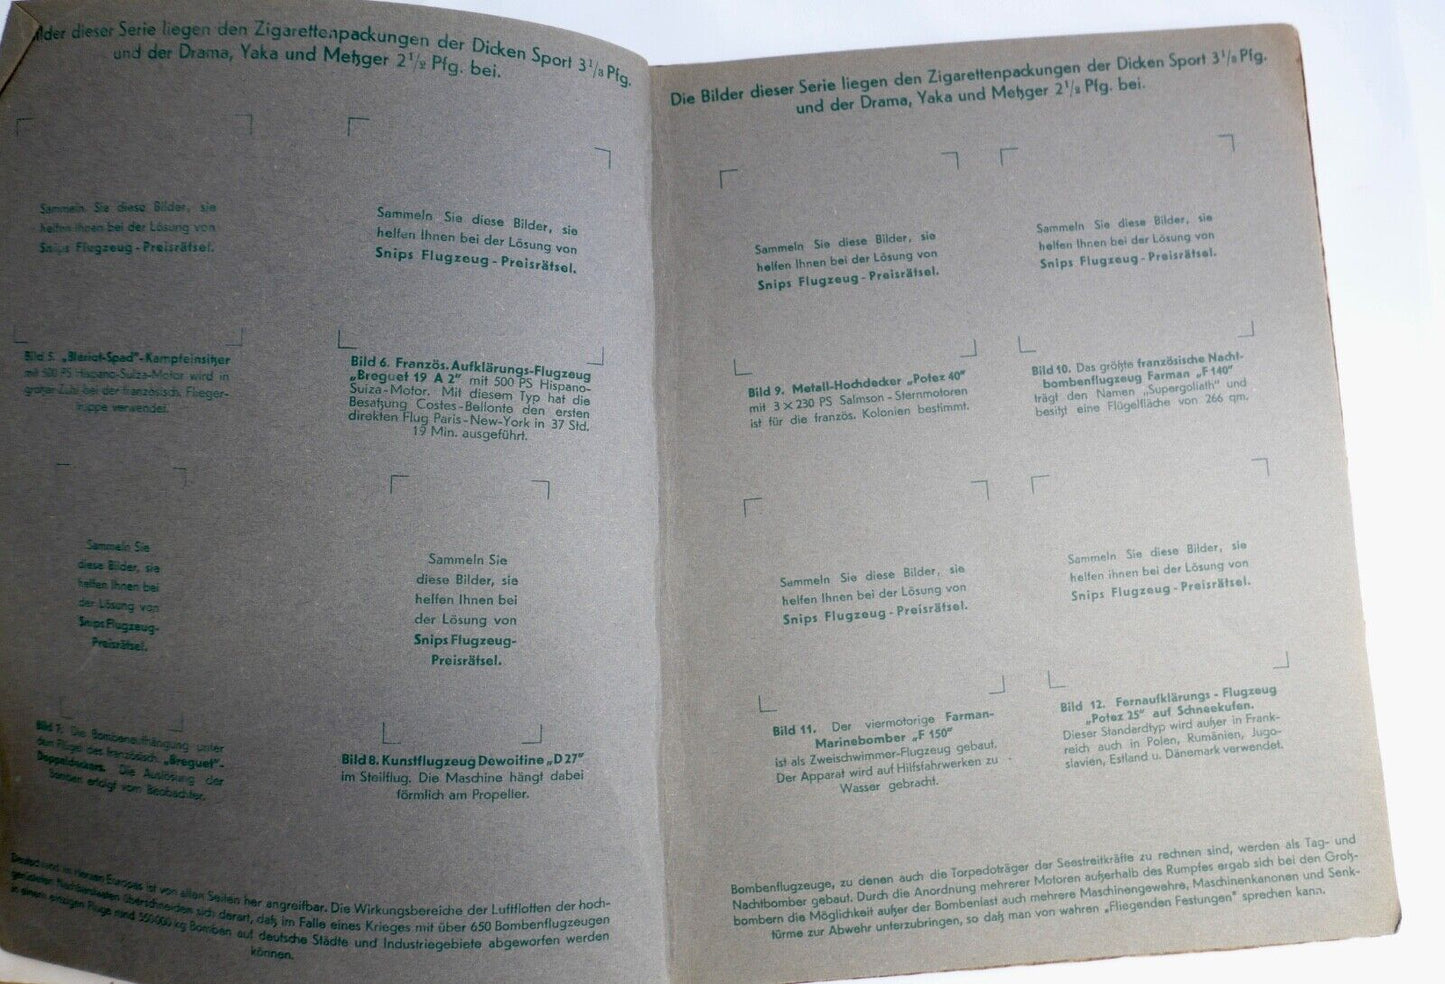 Bilder dieser Serie liegen den Zigarettenpackungen der Dicken Sport 3⅓ Pfg.
und der Drama, Yaka und Metzger 2½ Pfg. bei.
Sammeln Sie diese Bilder, sie
helfen Ihnen bei der Lösung von
Snips Flugzeug-Preisrätsel.
Sammeln Sie diese Bilder, sie
helfen Ihnen bei der Lösung von
Snips Flugzeug-Preisrätsel.
Bild 5. „Bleriot-Spad"-Kampfeinsitzer
mit 500 PS Hispano-Suiza-Motor wird in
großer Zahl bei der französisch. Flieger-
truppe verwendet.
Bild 6. Französ. Aufklärungs-Flugzeug
„Breguet 19 A 2" mit 500 PS Hispano-
Suiza-Motor. Mit diesem Typ hat die
Besatzung Costes-Bellonte den ersten
direkten Flug Paris-New-York in 37 Std.
19 Min. ausgeführt.
Sammeln Sie
diese Bilder, sie
helfen Ihnen bei
der Lösung von
Snips Flugzeug-
Preisrätsel.
Sammeln Sie
diese Bilder, sie
helfen Ihnen bei
der Lösung von
Snips Flugzeug-
Preisrätsel.
Bild 7. Die Bombenaufhängung unter
den Flügel des französisch. „Breguet"-
Doppeldeckers. Die Auslösung der
Bomben erfolgt vom Beobachter.
Bild 8. Kunstflugzeug Dewoitine „D 27"
im Steilflug. Die Maschine hängt dabei
förmlich am Propeller.
Deutschland im Herzen Europas ist von allen Seiten her angreifbar. Die Wirkungsbereiche der Luftflotten der hoch-
gerüsteten Nachbarstaaten überschneiden sich derart, daß im Falle eines Krieges mit über 650 Bombenflugzeugen
in einem einzigen Fluge rund 350000 kg Bomben auf deutsche Städte und Industriegebiete abgeworfen werden
können.
Die Bilder dieser Serie liegen den Zigarettenpackungen der Dicken Sport 3⅓ Pfg.
und der Drama, Yaka und Metzger 2½ Pfg. bei.
Sammeln Sie diese Bilder, sie
helfen Ihnen bei der Lösung von
Snips Flugzeug-Preisrätsel.
Sammeln Sie diese Bilder, sie
helfen Ihnen bei der Lösung von
Snips Flugzeug-Preisrätsel.
Bild 9. Metall-Hochdecker „Potez 40"
mit 3 × 230 PS Salmson-Sternmotoren
ist für die französ. Kolonien bestimmt.
Bild 10. Das größte französische Nacht-
bombenflugzeug Farman „F 140"
trägt den Namen „Supergoliath" und
besitzt eine Flügelfläche von 266 qm.
Sammeln Sie diese Bilder, sie
helfen Ihnen bei der Lösung von
Snips Flugzeug-Preisrätsel.
Sammeln Sie diese Bilder, sie
helfen ihnen bei der Lösung von
Snips Flugzeug-Preisrätsel.
Bild 11. Der viermotorige Farman-
Marinebomber „F 150"
ist als Zweischwimmer-Flugzeug gebaut.
Der Apparat wird auf Hilfsfahrwerken zu
Wasser gebracht.
Bild 12. Fernaufklärungs-Flugzeug
„Potez 25" auf Schneekufen.
Dieser Standardtyp wird außer in Frank-
reich auch in Polen, Rumänien, Jugo-
slavien, Estland u. Dänemark verwendet.
Bombenflugzeuge, zu denen auch die Torpedoträger der Seestreitkräfte zu rechnen sind, werden als Tag- und
Nachtbomber gebaut. Durch die Anordnung mehrerer Motoren außerhalb des Rumpfes ergab sich bei den Groß-
bombern die Möglichkeit außer der Bombenlast auch mehrere Maschinengewehre, Maschinenkanonen und Senk-
türme zur Abwehr unterzubringen, so daß man von wahren „Fliegenden Festungen" sprechen kann.